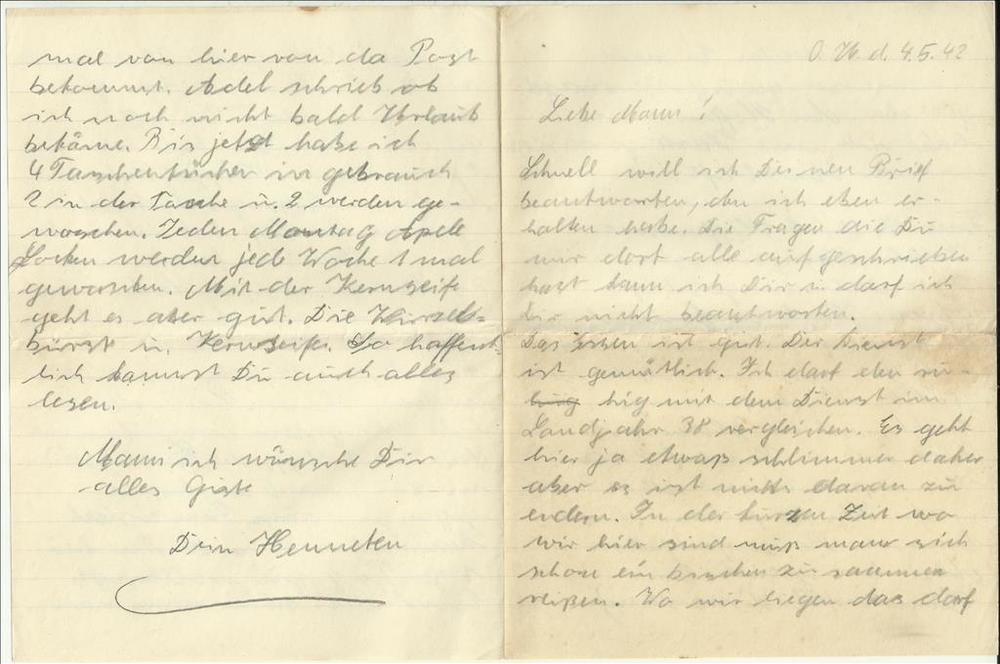 mal von hier von da Post
bekommst. Adel schrieb ob
ich noch nicht bald Urlaub
bekäme. Bis jetzt habe ich
4 Taschentücher in gebrauch
2 in der Tasche u. 2 werden ge-
waschen. Jeden Montag Apell
Socken werden jede Woche 1 mal
gewaschen. Mit der Kernseife
geht es aber gut. Die
bürst u. Kernseife. So hoffent-
lich kannst Du auch alles
lesen.
Mann ich wünsche Dir
alles Gute
Dein Henneken
O. U. d. 4.5.42
Liebe Mann!
Schnell will ich Deinen Brief
beantworten, den ich eben er-
halten habe. Die Fragen die Du
mir dort alle aufgeschrieben
hast kann ich Dir u. darf ich
Dir nicht beantworten.
Das Essen ist gut. Der Dienst
ist gemütlich. Ich darf den ru-
hig mit dem Dienst im
Landjahr 38 vergleichen. Es geht
hier ja etwaß schlimmer daher
aber es ist nichts daran zu
endern. In der kurzen Zeit wo
wir hier sind muß man sich
schon ein bischen zusammen
reißen. Wo wir liegen das darf